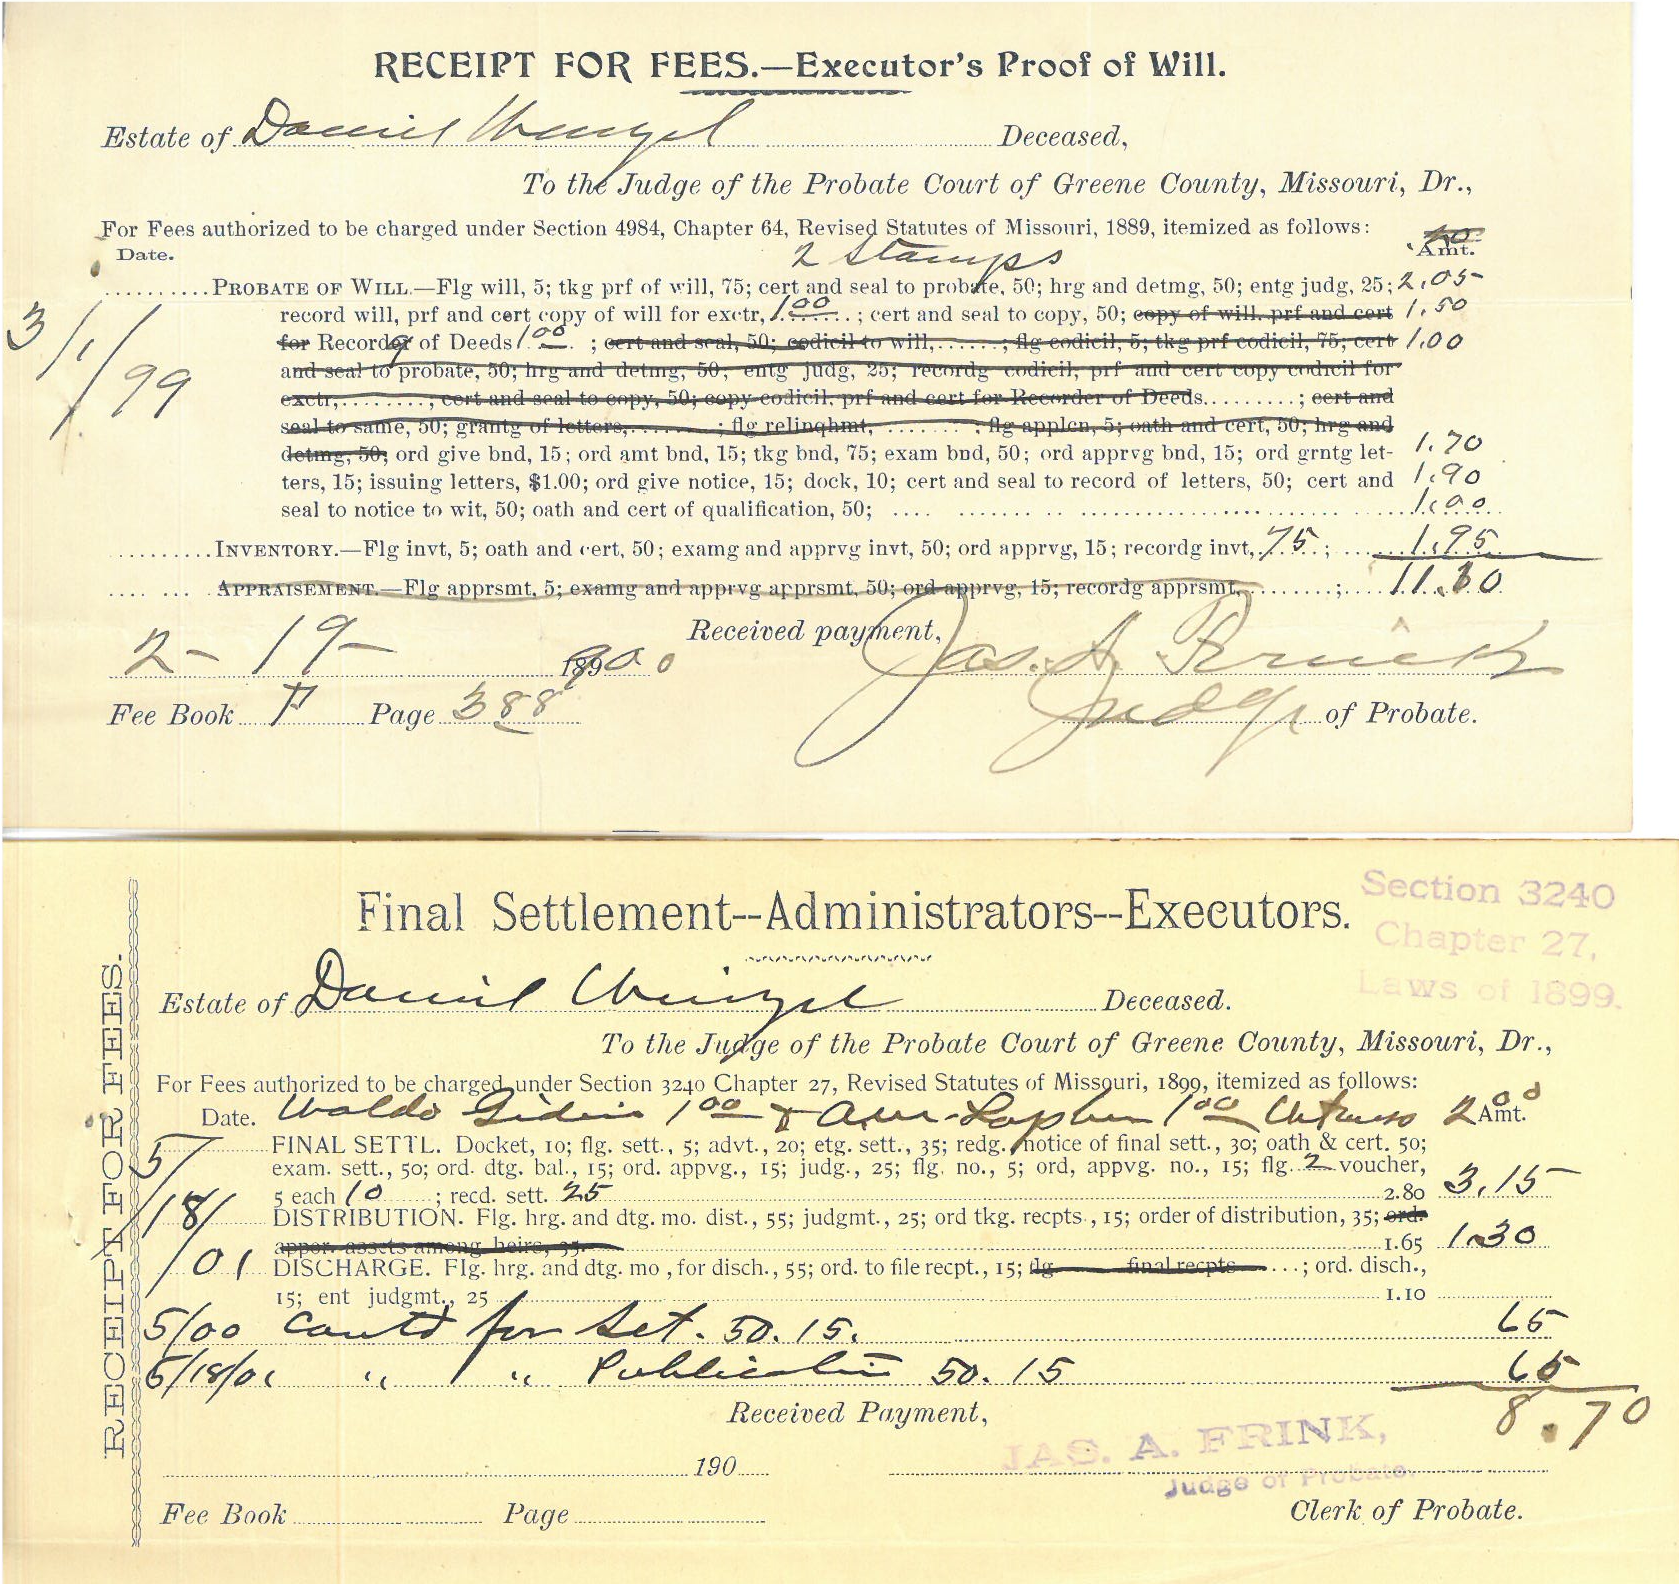 RECEIPT FOR FEES.—Executor's Proof of Will.
Estate of Daniel Wenzel Deceased,
To the Judge of the Probate Court of Greene County, Missouri, Dr.,
For Fees authorized to be charged under Section 4984, Chapter 64, Revised Statutes of Missouri, 1889, itemized as follows:
Date. 2 Stamps Amt.
PROBATE OF WILL.—Flg will, 5; tkg prf of will, 75; cert and seal to probate, 50; hrg and detmg, 50; entg judg, 25; 2.05
record will, prf and cert copy of will for exctr, 1.00; cert and seal to copy, 50; copy of will. prf and cert 1.50
for Recordg of Deeds 1.00; cert and seal, 50; codicil to will,......; flg codicil, 5; tkg prf codicil, 75; cert 1.00
3/1/99
and seal to probate, 50; hrg and detmg, 50; entg judg, 25; recordg codicil, prf and cert copy codicil for
exctr,........, cert and seal to copy, 50; copy codicil, prf and cert for Recorder of Deeds.........; cert and
seal to same, 50; grantg of letters,.........; flg relinqhmt, .........; flg applcn, 5; oath and cert, 50; hrg and
detmg, 50; ord give bnd, 15; ord amt bnd, 15; tkg bnd, 75; exam bnd, 50; ord apprvg bnd, 15; ord grntg let- 1.70
ters, 15; issuing letters, $1.00; ord give notice, 15; dock, 10; cert and seal to record of letters, 50; cert and 1.90
seal to notice to wit, 50; oath and cert of qualification, 50; 1.00
INVENTORY.—Flg invt, 5; oath and cert, 50; examg and apprvg invt, 50; ord apprvg, 15; recordg invt, 75; 1.95
APPRAISEMENT.—Flg apprsmt, 5; examg and apprvg apprsmt, 50; ord apprvg, 15; recordg apprsmt, .........; 11.10
Received payment,
2-19- 1900 Jas. A. Frink
Fee Book F Page 388 Judge of Probate.
Section 3240
Chapter 27,
Laws of 1899.
Final Settlement--Administrators--Executors.
RECEIPT FOR FEES.
Estate of Daniel Wenzel Deceased.
To the Judge of the Probate Court of Greene County, Missouri, Dr.,
For Fees authorized to be charged under Section 3240 Chapter 27, Revised Statutes of Missouri, 1899, itemized as follows:
Date. Waldo 1.00 & 1.00 Witness 2.00 Amt.
FINAL SETTL. Docket, 10; flg. sett., 5; advt., 20; etg. sett., 35; redg. notice of final sett., 30; oath & cert. 50;
exam. sett., 50; ord. dtg. bal., 15; ord. appvg., 15; judg., 25; flg. no., 5; ord, appvg. no., 15; flg. 2 voucher,
5 each 10 ; recd. sett. 25 2.80 3.15
5/18/01
DISTRIBUTION. Flg. hrg. and dtg. mo. dist., 55; judgmt., 25; ord tkg. recpts., 15; order of distribution, 35; ord.
appor. assets among heirs, 35. 1.65 1.30
DISCHARGE. Flg. hrg. and dtg. mo, for disch., 55; ord. to file recpt., 15; flg final recpts ...; ord. disch.,
15; ent judgmt., 25 1.10
5/00 Contd for Set. 50.15. 65
5/18/01 " " Publication 50.15 65
Received Payment, 8.70
JAS. A. FRINK,
190
Judge of Probate.
Fee Book Page Clerk of Probate.